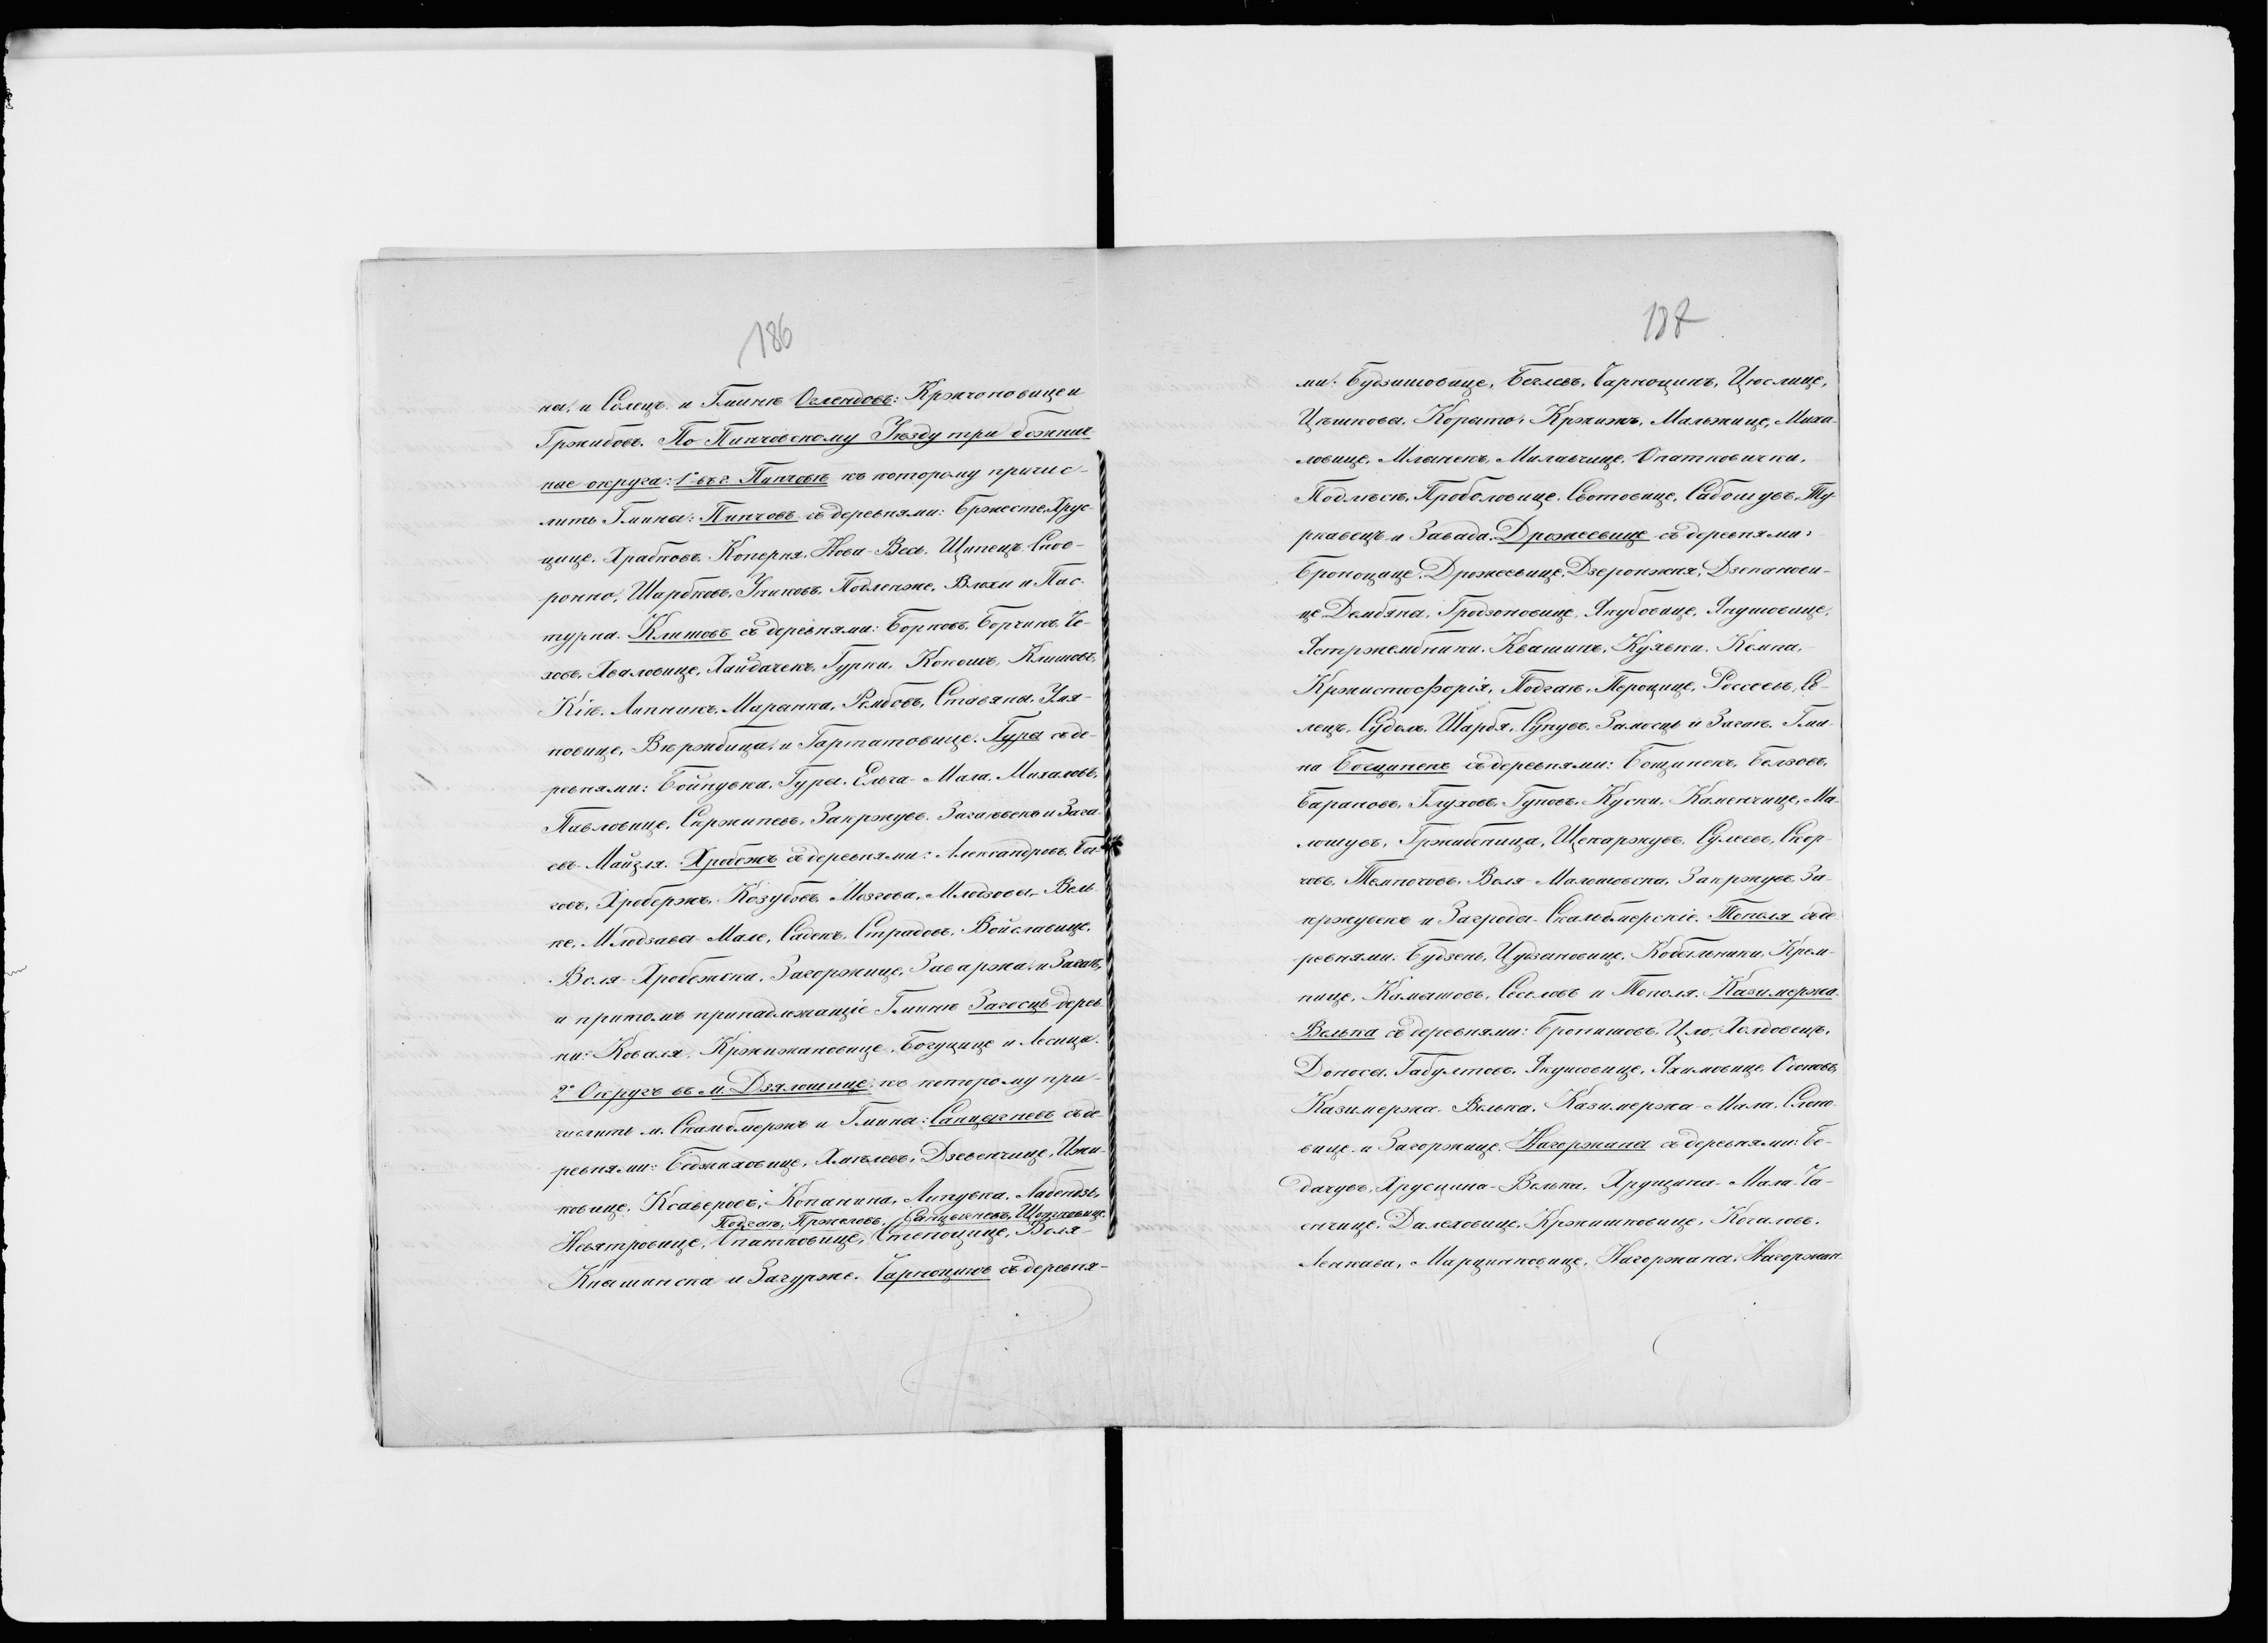 186
на, и Солецъ и Гминѣ Оглендовъ: Кржчоновице и
Гржибовъ. По Пинчовскому Уѣзду три божнич-
ные округа: 1° въ г. Пинчовѣ къ которому причис-
лить Гмины: Пинчовъ съ деревнями: Бржесте, Хрус-
цице, Храбковъ, Коперня, Нова-Весь, Щипецъ, Сков-
ронно, Шарбковъ, Униковъ, Подленже, Влохи и Пас-
турка. Клишовъ съ деревнями: Борковъ, Борчинъ, Че-
ховъ, Хваловице, Хайдачекъ, Гурки, Кокошъ, Клишовъ,
Кіѣ, Липникъ, Маранка, Рембовъ, Ставяны, Умя-
новице, Вержбица, и Гартатовице. Гуры съ де-
ревнями: Бойнувка, Гуры, Ельча-Мала, Михаловъ,
Павловице, Скржипевъ, Закржувъ, Загаювекъ и Зага-
евъ Майзля. Хробежъ съ деревнями: Александровъ, Бо-
говъ, Хробержъ, Козубовъ, Мозгова, Млодзовы-Вель-
ке, Млодзавы-Мале, Садекъ, Страдовъ, Войславице,
Воля-Хробежска, Загоржице, Заваржа, и Загаѣ,
и притомъ принадлежащіе Гминѣ Загосць дерев-
ни: Коваля, Кржижановице, Богуцице и Лесица.
2° Округъ въ м. Дзялошице, къ которому при-
числить м. Скалбмержъ и Гмина: Санцыгневъ съ де-
ревнями: Беджиховице, Хмѣлевъ, Дзевенчице, Ижи-
ковице, Ксаверовъ, Копанина, Липувка, Лабендзь,
Подгаѣ, Пржеловъ, Санцыгневъ, Шишковице
Невятровице, Опатковице, Стемпоцице, Воля-
Кнышинска и Загурже. Чарноцинъ съ деревня-
187
ми: Будзишовице, Беглевъ, Чарноцинъ, Цюслице,
Цѣшковы, Корыто, Кржижъ, Мальжице, Миха-
ловице, Млынекъ, Милавчице, Опатковички,
Подлѣсѣ, Проболовице, Свотовице, Сабошувъ, Ту-
ркавецъ и Завада. Дрожеевице съ деревнями:
Броноцице, Дрожеевице, Дзеронжня, Дзекановi-
це Дембяны, Гродзоновице, Якубовице, Янушовице,
Ястржембники, Квашинъ, Кужвки, Кемпа,
Кржистофорія, Подгаѣ, Пероцице, Россеевъ, Се-
лецъ, Судолъ, Шарбя, Сукувъ, Замосць и Загаѣ. Гми-
на Босцинекъ съ деревнями: Бощинекъ, Белзовъ,
Барановъ, Глуховъ, Гуновъ, Куски, Каменчице, Ма-
лошувъ, Гржибеница, Щекаржувъ, Сулеевъ, Скор-
човъ, Темпочовъ, Воля-Малошовска, Закржувъ, За-
кржувекъ и Загроды-Скальбмерскіе. Тополя съ де-
ревнями: Будзень, Цудзановице, Кобыльники, Крем-
пице, Камышовъ, Сеселовъ и Тополя. Казимержа-
Велька съ деревнями: Бронишовъ, Цло, Холдовецъ,
Доносы, Габултовъ, Якушовице, Яхимовице, Осоковъ,
Казимержа-Велька, Казимержа-Мала, Слоно-
вице и Загоржице. Нагоржаны съ деревнями: Бе-
дачувъ, Хрусцина-Велька, Хрущина-Мала, Ча-
енчице, Далеховице, Кржишковице, Кочаловъ,
Ленкава, Марцинковице, Нагоржана, Нагоржан-